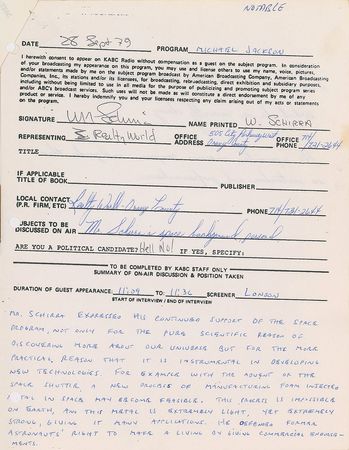 NOTABLE
DATE 28 Sept 79 PROGRAM MICHAEL JACKSON
I herewith consent to appear on KABC Radio without compensation as a guest on the subject program. In consideration
of your broadcasting my appearance on this program, you may use and license others to use my name, voice, pictures,
and/or statements made by me on the subject program broadcast by American Broadcasting Company, American Broadcasting
Companies, Inc., its stations and/or its licensees, for broadcasting, rebroadcasting, direct exhibition and subsidiary purposes,
including without being limited to use in all media for the purpose of publicizing and promoting subject program series
and/or ABC's broadcast services. Such uses will not be made as will constitute a direct endorsement by me of any
product or service. I hereby indemnify you and your licensees respecting any claim arising out of my acts or statements
on the program.
SIGNATURE NAME PRINTED W. SCHIRRA
REPRESENTING Realty World OFFICE ADDRESS 505 City Parkway West Orange County OFFICE PHONE 714/731-2644
TITLE
IF APPLICABLE
TITLE OF BOOK PUBLISHER
LOCAL CONTACT Realty World - Orange County PHONE 714/731-2644
(P.R. FIRM, ETC)
SUBJECTS TO BE
DISCUSSED ON AIR Mr. Schirra's space background, general
ARE YOU A POLITICAL CANDIDATE? Hell No! IF YES, SPECIFY:
TO BE COMPLETED BY KABC STAFF ONLY
SUMMARY OF ON-AIR DISCUSSION & POSITION TAKEN
DURATION OF GUEST APPEARANCE: 11:09 TO 11:36 SCREENER LONDON
START OF INTERVIEW / END OF INTERVIEW
MR. SCHIRRA EXPRESSED HIS CONTINUED SUPPORT OF THE SPACE
PROGRAM, NOT ONLY FOR THE PURE SCIENTIFIC REASON OF
DISCOVERING MORE ABOUT OUR UNIVERSE BUT FOR THE MORE
PRACTICAL REASON THAT IT IS INSTRUMENTAL IN DEVELOPING
NEW TECHNOLOGIES. FOR EXAMPLE WITH THE ADVENT OF THE
SPACE SHUTTLE, A NEW PROCESS OF MANUFACTURING FOAM INJECTED
METAL IN SPACE MAY BECOME FEASIBLE. THIS PROCESS IS IMPOSSIBLE
ON EARTH, AND THIS METAL IS EXTREMELY LIGHT, YET EXTREMELY
STRONG, GIVING IT MANY APPLICATIONS. HE DEFENDED FORMER
ASTRONAUTS' RIGHT TO MAKE A LIVING BY GIVING COMMERCIAL ENDORSE-
MENTS.